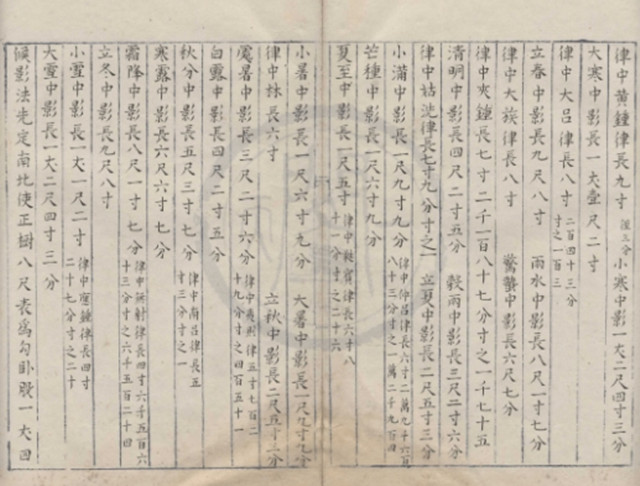 律中黃鍾律長九寸 小寒中影一丈二尺四寸三分
大寒中影長一丈壹尺二寸
律中大呂律長八寸 二百四十三分寸之一百三
立春中影長九尺八寸 雨水中影長八尺一寸七分
律中大蔟律長八寸 驚蟄中影長六尺七分
律中夾鍾長七寸二千一百八十七分寸之一千七十五
清明中影長四尺二寸五分 穀雨中影長三尺二寸六分
律中姑洗律長七寸九分寸之一 立夏中影長二尺五寸三分
小滿中影長一尺九寸九分 律中仲呂律長六寸二萬九千六百八十三分寸之一萬二千九百四
芒種中影長一尺六寸九分
夏至中影長一尺五寸 律中蕤賓律長六寸八十一分寸之二十六
小暑中影長一尺六寸九分 大暑中影長一尺九寸九分
律中林長六寸 立秋中影長二尺五寸三分
處暑中影長三尺二寸六分 律中夷則律五寸七百二十九分寸之四百五十一
白露中影長四尺二寸五分
秋分中影長五尺三寸七分 律中南呂律長五寸三分寸之一
寒露中影長六尺六寸七分
霜降中影長八尺一寸七分 律中無射律長四寸六千五百六十三分寸之六千五百二十四
立冬中影長九尺八寸
小雪中影長一丈一尺二寸 律中應鍾律長四寸二十七分寸之二十
大雪中影長一丈二尺四寸三分
候影法先定南北使正樹八尺表為勾卧股一丈四